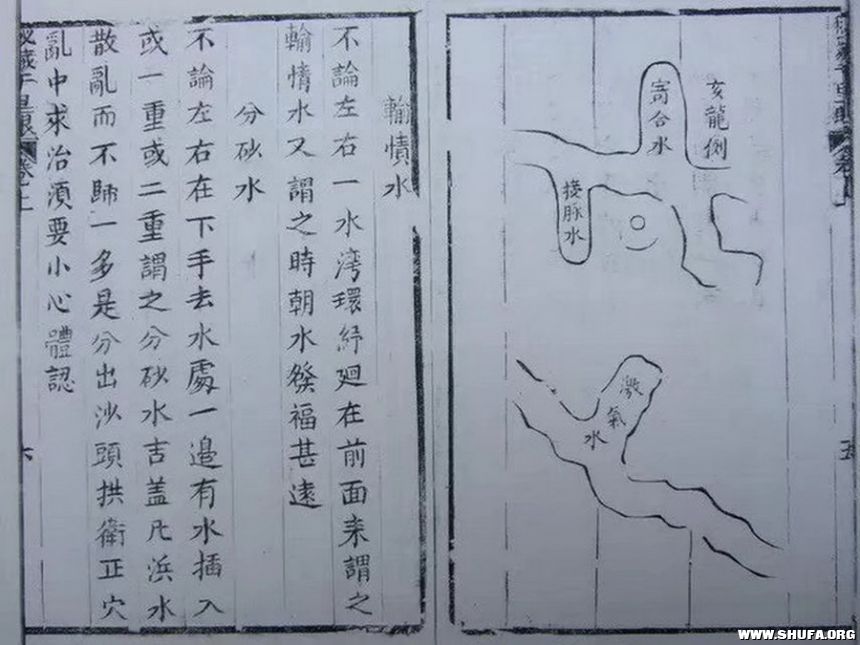 亥龍側
寄合水
接脉水
激氣水
輸情水
不論左右一水湾環紆廻在前面来謂之
輸情水又謂之時朝水發福甚遠
分砂水
不論左右在下手去水處一邉有水插入
或一重或二重謂之分砂水吉盖凡浜水
散亂而不歸一多是分出沙頭拱衛正穴
亂中求治湏要小心體認
六
WWW.SHUFA.ORG